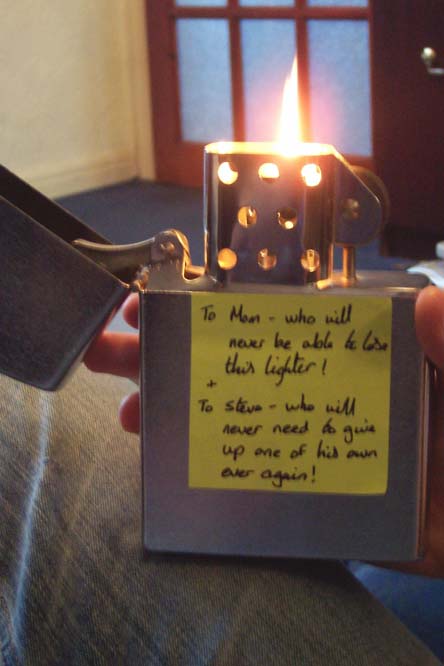 To Mom - who will
never be able to lose
this lighter!
+
To Steve - who will
never need to give
up one of his own
ever again!